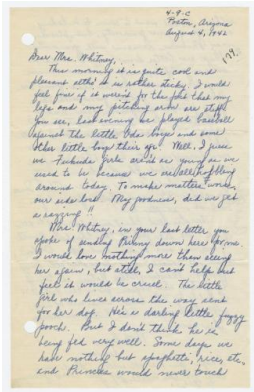 4-9-C
Poston, Arizona
August 4, 1942
Dear Mrs. Whitney,
This morning it is quite cool and
pleasant altho' it is rather sticky. I would
feel fine if it weren't for the fact that my
legs and my pitching arm are stiff.
You see, last evening we played baseball
against the little Oda boys and some
other little boys their age. Well, I guess
we Fukuda girls aren't as young as we
used to be because we are all hobbling
around today. To make matters worse,
our side lost. My goodness, did we get
a razzing!!
Mrs. Whitney, in your last letter you
spoke of sending down here for me.
I would love nothing more than seeing
her again, but still, I can't help but
feel it would be cruel. The little
girl who lives across the way sent
for her dog. He is a darling little fuzzy
pooch. But I don't think he is
being fed very well. Some days we
have nothing but spaghetti, rice, etc.
and Princess would never touch